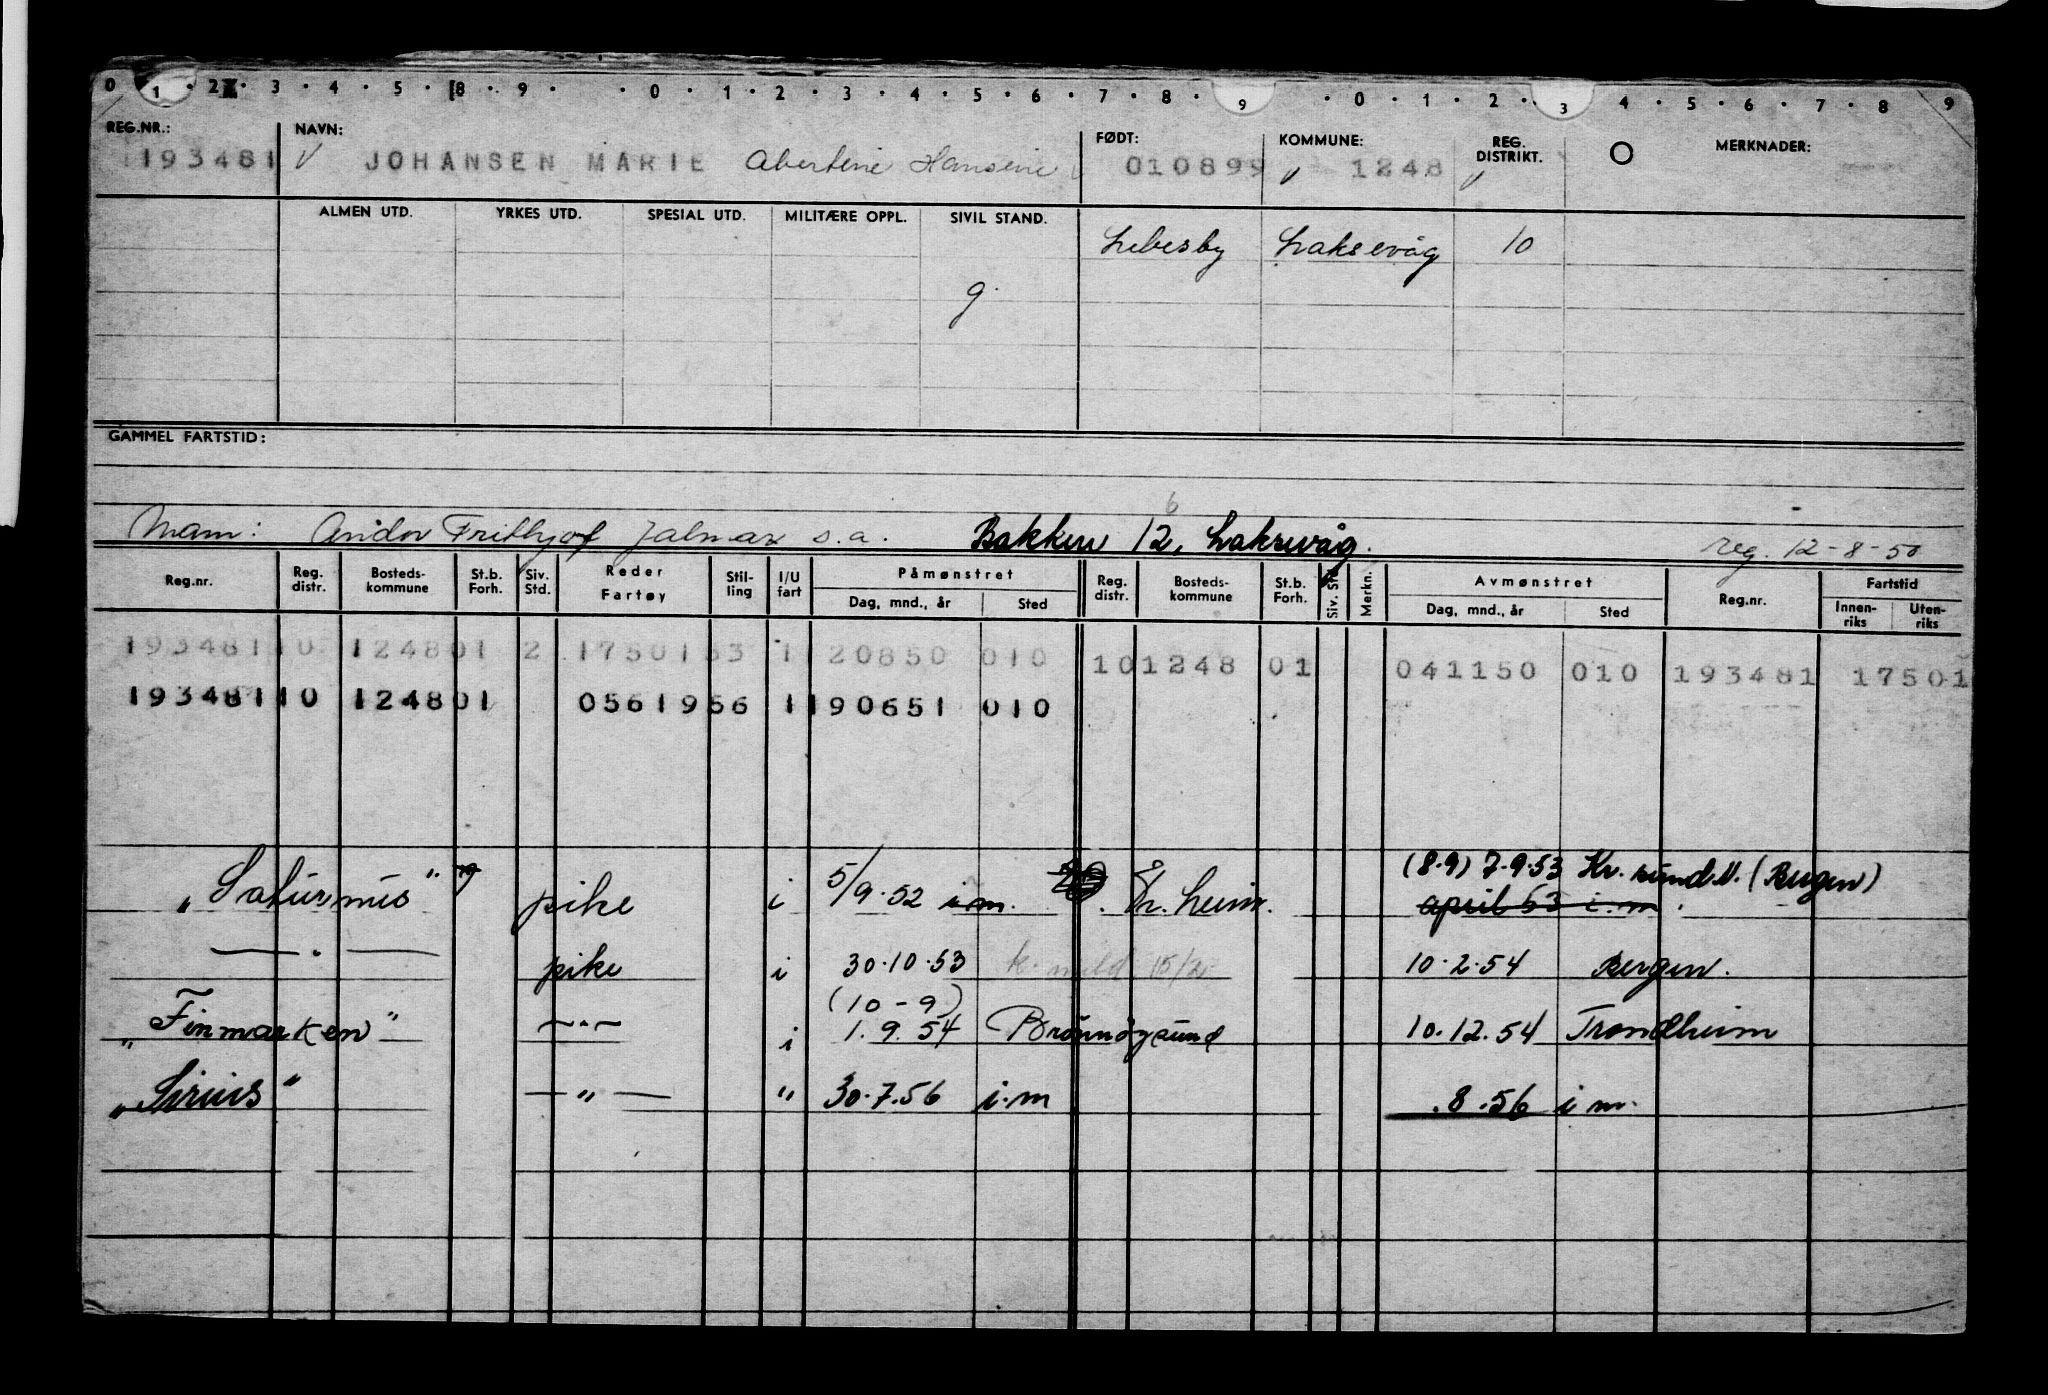 0 1 · 2 · 3 · 4 · 5 · 8 · 9 · · 0 · 1 · 2 · 3 · 4 · 5 · 6 · 7 · 8 · 9 · 0 · 1 · 2 · 3 4 · 5 · 6 · 7 · 8 9
REG.NR.: NAVN: FØDT: KOMMUNE: REG. DISTRIKT. O MERKNADER:
193481 V JOHANSEN MARIE Abertine Hansine 010899 V 1248 V
ALMEN UTD. YRKES UTD. SPESIAL UTD. MILITÆRE OPPL. SIVIL STAND.
Lebesby Laksevåg 10
g.
GAMMEL FARTSTID:
b
Mann: Andor Frithjof Jalmar s.a. Bakken 12, Laksevåg. reg. 12-8-50
Reg.nr. Reg. distr. Bosteds-kommune St.b. Forh. Siv. Std. Reder Fartøy Stil-ling I/U fart Påmønstret Reg. distr. Bosteds-kommune St.b. Forh. Siv. Std. Merkn. Avmønstret Reg.nr. Fartstid
Dag, mnd., år Sted Dag, mnd., år Sted Innen-riks Uten-riks
193481 10 1248 01 2 1750153 1 120850 010 10 1248 01 041150 010 193481 17501
193481 10 1248 01 0561956 1 190651 010
(8.9) 7.9.53 Kr.sund.N. (Bergen)
"Saturnus" pike i 5/9.52 i.m. april 53 i.m.
— " — pike i 30.10.53 k. meld. 15/2 10.2.54 Bergen.
(10-9)
"Finmarken" — " — i 1.9.54 Brönnöysund 10.12.54 Trondheim
"Sirius" — " — " 30.7.56 i.m .8.56 i m.